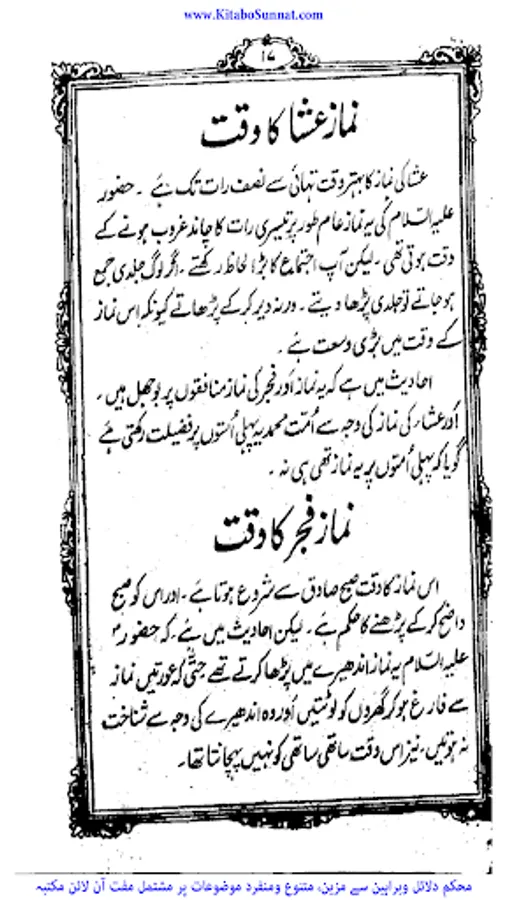 www.KitaboSunnat.com
۱۷
نماز عشا کا وقت
عشا کی نماز کا بہتر وقت تہائی سے نصف رات تک ہے ۔ حضور
علیہ السلام کی یہ نماز عام طور پر تیسری رات کا چاند غروب ہونے کے
وقت ہوتی تھی ۔ لیکن آپ اجتماع کا بڑا لحاظ رکھتے ۔ اگر لوگ جلدی جمع
ہو جاتے تو جلدی پڑھا دیتے ۔ ورنہ دیر کر کے پڑھاتے کیونکہ اس نماز
کے وقت میں بڑی وسعت ہے ۔
احادیث میں ہے کہ یہ نماز اور فجر کی نماز منافقوں پر بوجھل ہیں ۔
اور عشاء کی نماز کی وجہ سے اُمت محمدیہ پہلی اُمتوں پر فضیلت رکھتی ہے
گویا کہ پہلی اُمتوں پر یہ نماز تھی ہی نہ ۔
نماز فجر کا وقت
اس نماز کا وقت صبح صادق سے شروع ہوتا ہے ۔ اور اس کو صبح
واضح کر کے پڑھنے کا حکم ہے ۔ لیکن احادیث میں ہے ۔ کہ حضور
علیہ السلام یہ نماز اندھیرے میں پڑھا کرتے تھے حتیٰ کہ عورتیں نماز
سے فارغ ہو کر گھروں کو لوٹتیں اور وہ اندھیرے کی وجہ سے شناخت
نہ ہوتیں ، نیز اس وقت ساتھی ساتھی کو نہیں پہچانتا تھا ۔
محکم دلائل وبراہین سے مزین، متنوع ومنفرد موضوعات پر مشتمل مفت آن لائن مکتبہ